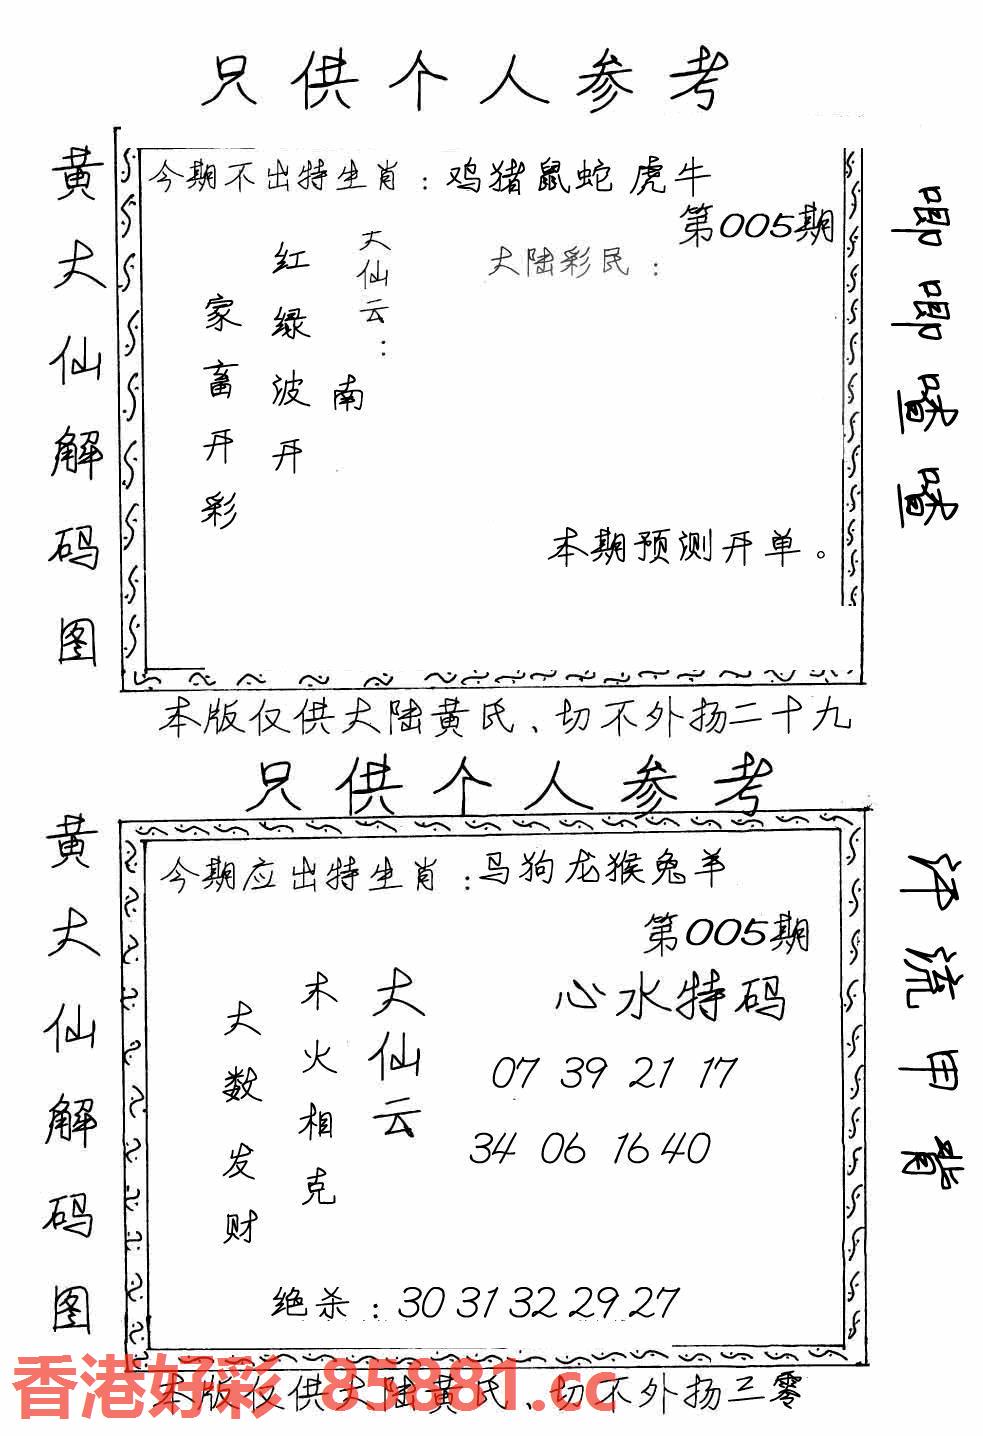 只供个人参考
黄大仙解码图
今期不出特生肖：鸡猪鼠蛇虎牛
第005期
大陆彩民：
大仙云：
南
红绿波开
家畜开彩
本期预测开单。
唧唧喳喳
本版仅供大陆黄氏、切不外扬二十九
只供个人参考
黄大仙解码图
今期应出特生肖：马狗龙猴兔羊
第005期
心水特码
07 39 21 17
34 06 16 40
大仙云
木火相克
大数发财
绝杀：30 31 32 29 27
汗流甲背
香港好彩 85881.cc
本版仅供大陆黄氏、切不外扬三零